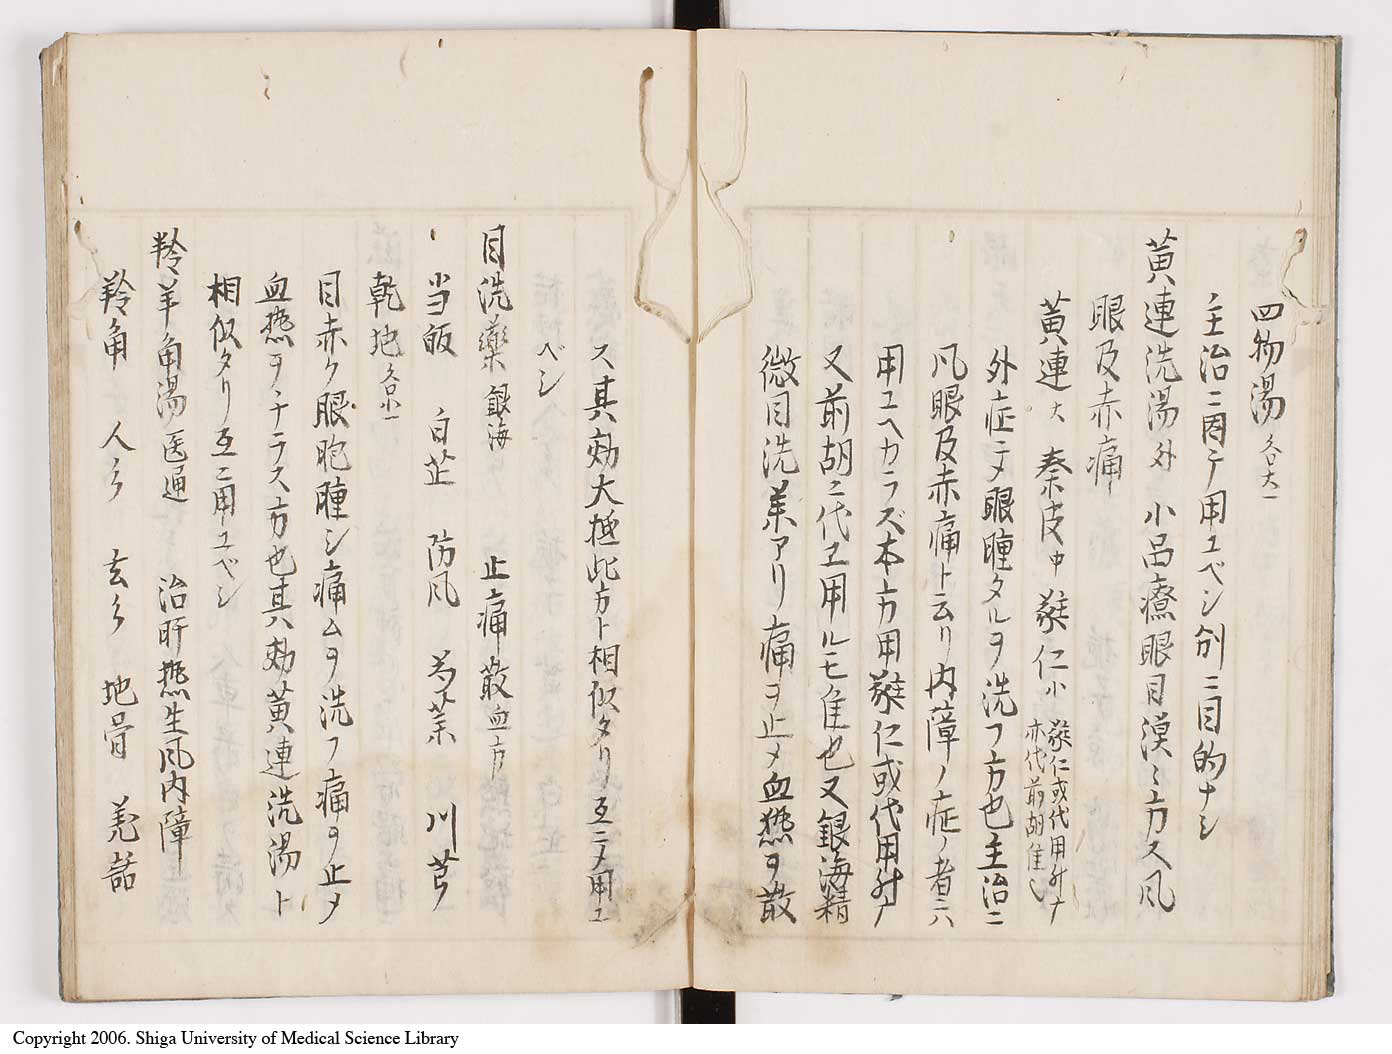 四物湯 各大一
主治ニ因テ用ユベシ別ニ目的ナシ
黄連洗湯 外 小品療眼目漠々方又風
眼及赤痛
黄連 大 秦皮 中 蕤仁 小 蕤仁或代用
亦代前胡佳也
外症ニテ眼瞳タルヲ洗フ方也主治ニ
凡眼及赤痛ト云リ内障ノ症ノ者ニハ
用ユヘカラズ本方用蕤仁或代用
又前胡ニ代エ用ルモ佳也又銀海精
微目洗薬アリ痛ヲ止メ血熱ヲ散
ス其効大抵此方ト相似タリ互ニ用ユ
ベシ
目洗薬 銀海 止痛散血方
当皈 白芷 防風 川芎
乾地 各小一
目赤ク眼胞腫シ痛ムヲ洗フ痛ヲ止メ
血熱ヲチラス方也其効黄連洗湯ト
相似タリ互ニ用ユベシ
羚羊角湯 医通 治肝熱生風内障
羚角 人 玄 地骨 羌
Copyright 2006. Shiga University of Medical Science Library